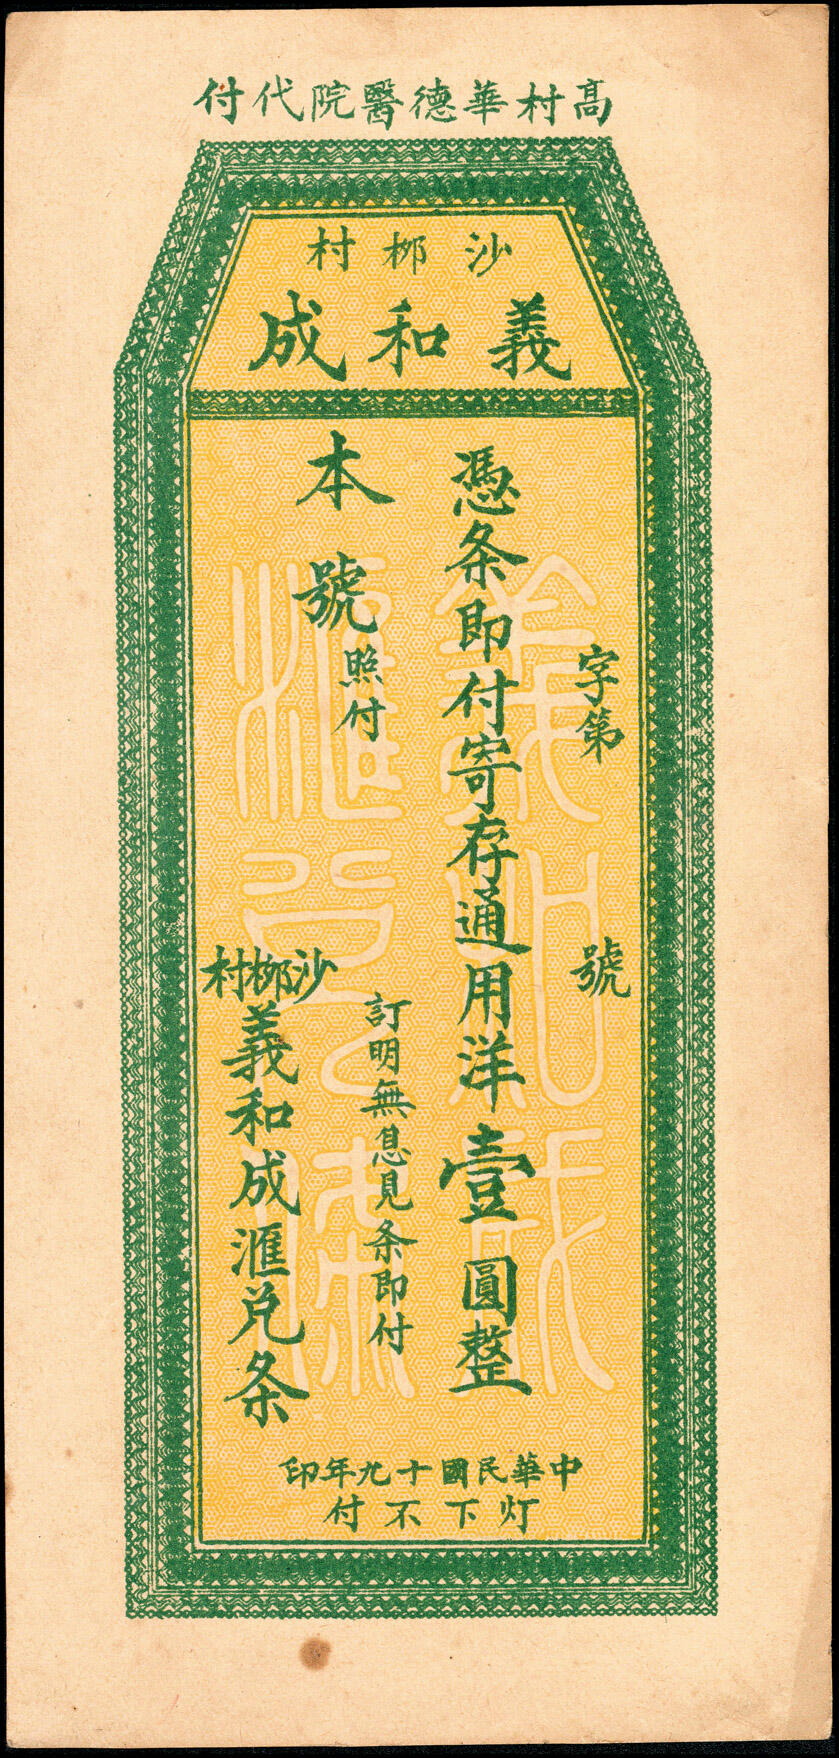 高村華德醫院代付
沙栁村
義和成
字第　號
憑条即付寄存通用洋壹圓整
訂明無息見条即付
本號照付
沙栁村
義和成滙兑条
中華民國十九年印
灯下不付